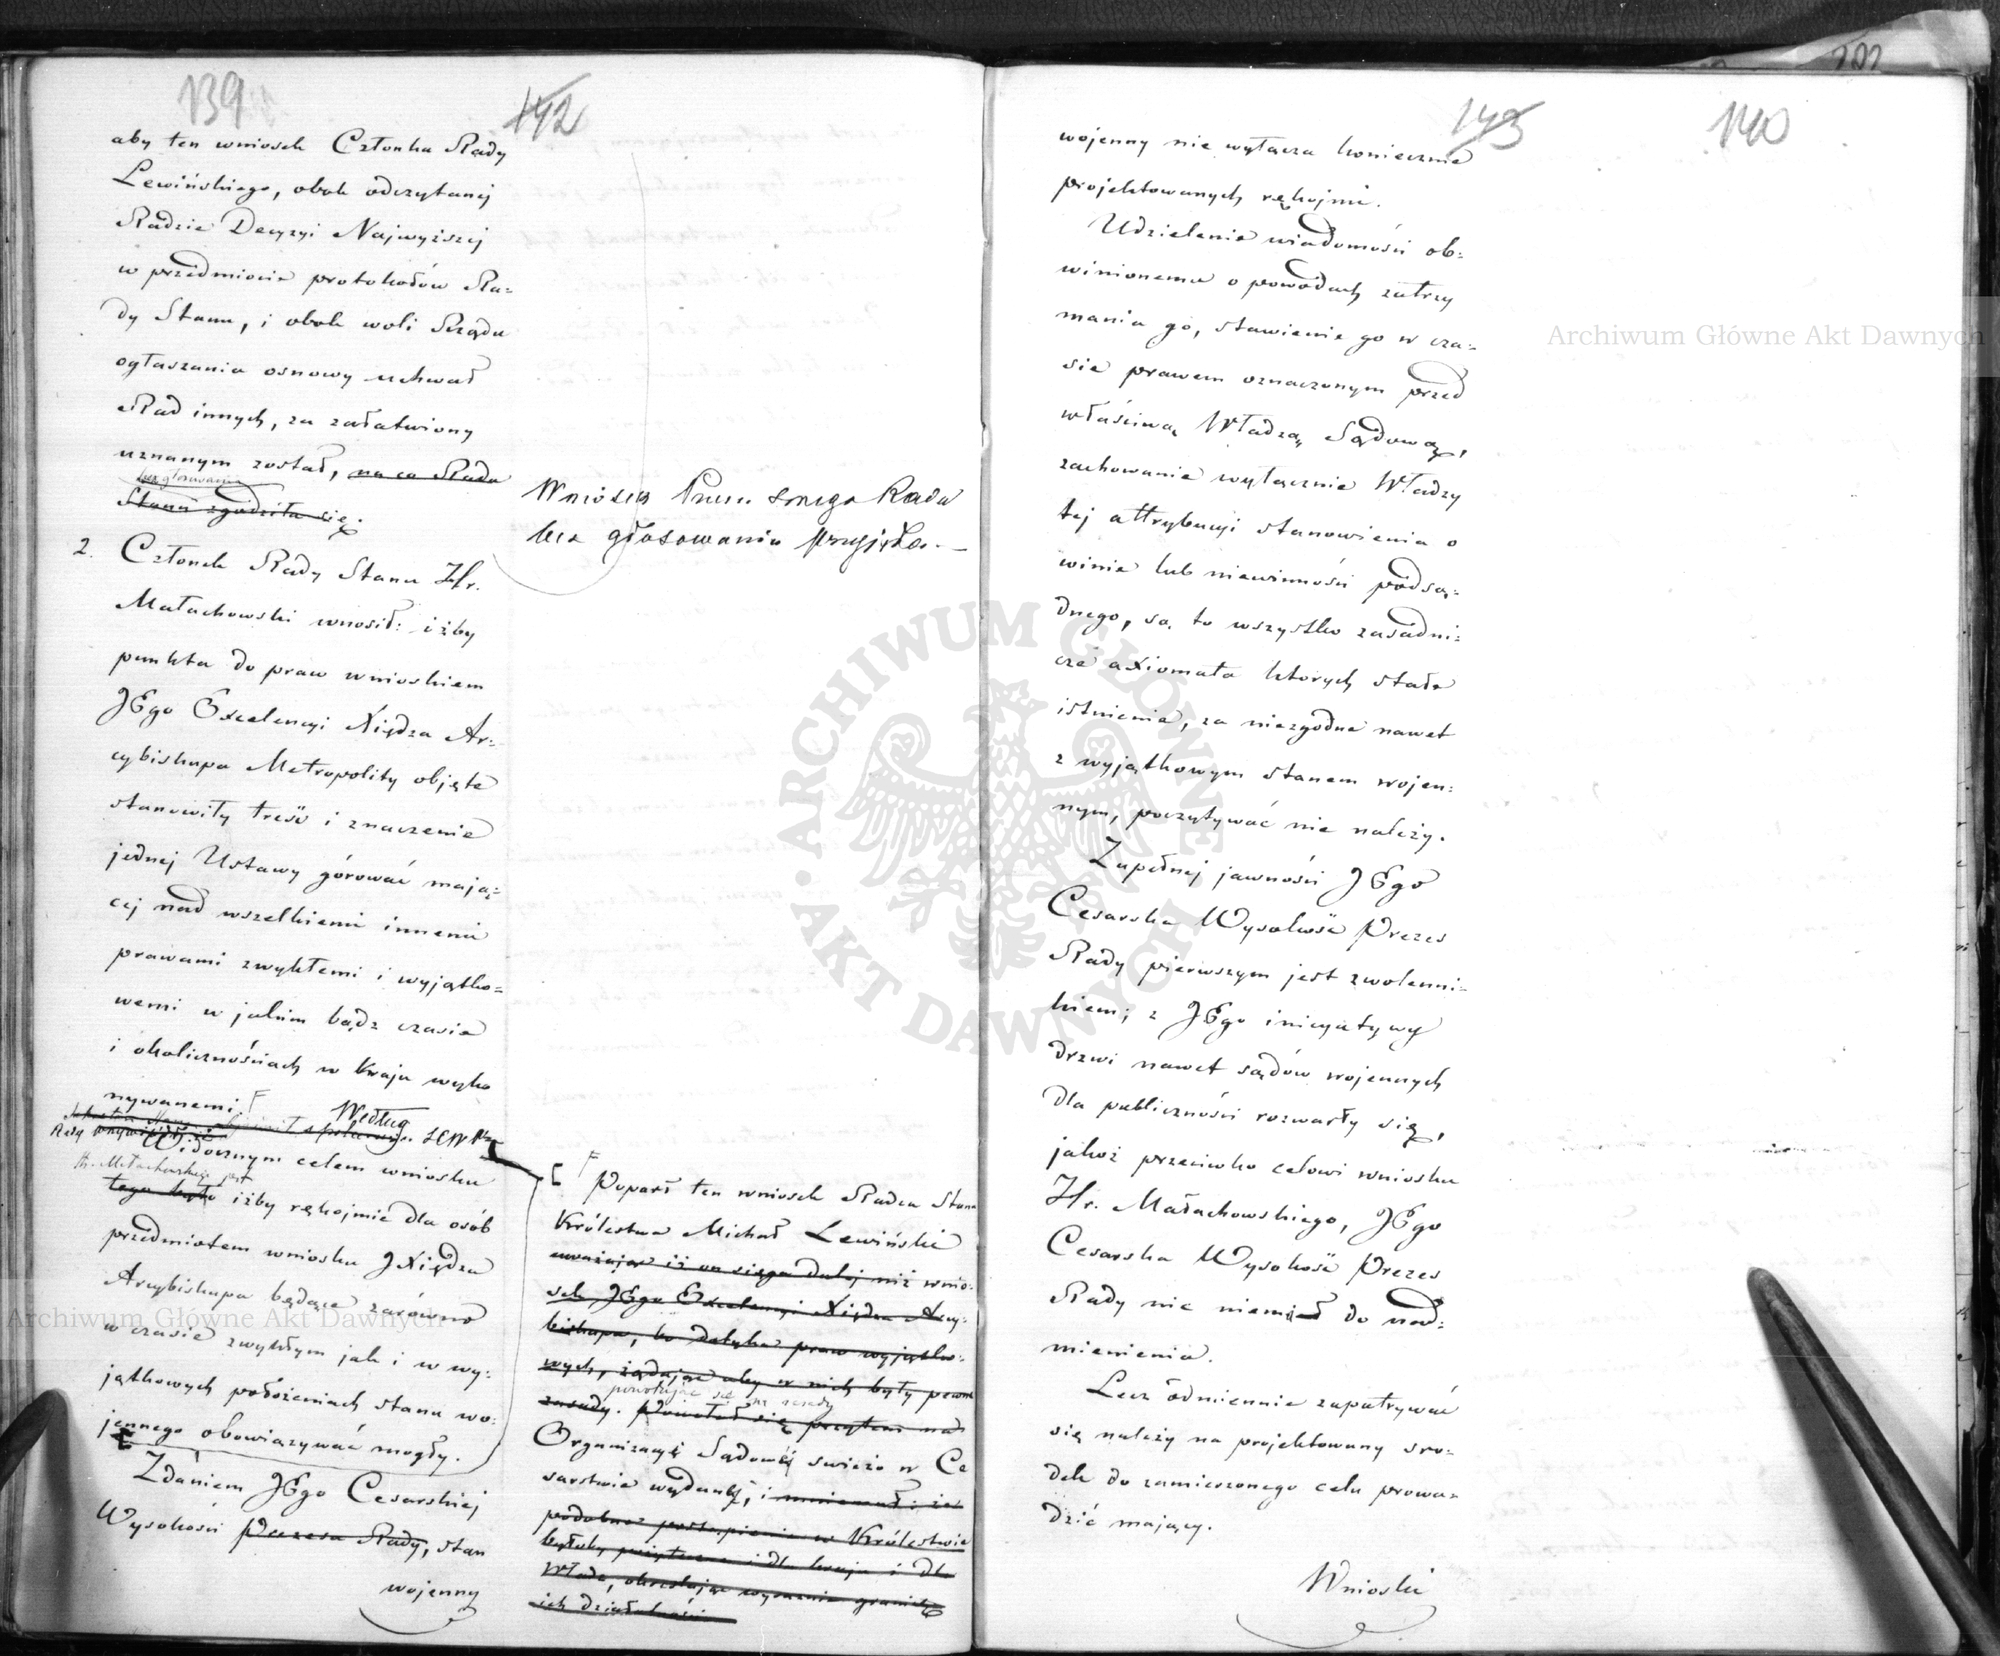 139
142
aby ten wniosek Członka Rady
Lewińskiego, obok odczytanej
Radzie Decyzyi Najwyższej
w przedmiocie protokołów Ra-
dy Stanu, i obok woli Rządu
ogłaszania osnowy uchwał
Rad innych, za załatwiony
uznanym został, na co Rada
bez głosowania
Stanu zgodziła się.
Wniosek Prezesa Rada
bez głosowania przyjęła.—
2. Członek Rady Stanu Hr.
Małachowski wnosił: iżby
punkta do praw wnioskiem
JEgo Excelencyi Xiędza Ar-
cybiskupa Metropolity objęte
stanowiły treść i znaczenie
jednej Ustawy górować mają-
cej nad wszelkiemi innemi
prawami zwykłemi i wyjątko-
wemi w jakim bądź czasie
i okolicznościach w Kraju wyko
nywanemi. F
Według
Rady
Widocznym celem wniosku
Hr. Małachowskiego jest
tego było iżby rękojmie dla osób
przedmiotem wniosku JXiędza
Arcybiskupa będące zarówno
w czasie zwykłym jak i w wy-
jątkowych położeniach stanu wo-
jennego obowiązywać mogły.
Zdaniem JEgo Cesarskiej
Wysokości Prezesa Rady, stan
wojenny
F
Poparł ten wniosek Radca Stanu
Królestwa Michał Lewiński
uważając iż on sięga dalej niż wnio-
sek JEgo Excelencyi Xiędza Arcy-
biskupa, bo dotyka praw wyjątko-
wych, żądając aby w nich były pewne
powołując się na zasady
zasady. Powołał się przytem na
Organizacyę Sądowej świeżo w Ce
sarstwie wydanej, i mniemał: że
podobne postąpienie w Królestwie
byłoby pożyteczne i dla kraju i dla
Władz, określając wyraźnie granice
ich działalności
143
140
wojenny nie wyłącza koniecznie
projektowanych rękojmi.
Udzielenie wiadomości ob-
winionemu o powodach zatrzy
mania go, stawienie go w cza-
sie prawem oznaczonym przed
właściwą Władzą Sądową,
zachowanie wyłącznie Władzy
tej attrybucyi stanowienia o
winie lub niewinności podsą-
dnego, są to wszystko zasadni-
cze axiomata których stałe
istnienie, za niezgodne nawet
z wyjątkowym stanem wojen-
nym, poczytywać nie należy.
Zupełnej jawności JEgo
Cesarska Wysokość Prezes
Rady pierwszym jest zwolenni-
kiem; z JEgo inicyatywy
drzwi nawet sądów wojennych
dla publiczności rozwarły się,
jakoż przeciwko celowi wniosku
Hr. Małachowskiego, JEgo
Cesarska Wysokość Prezes
Rady nic niemiał do nad-
mienienia.
Lecz odmiennie zapatrywać
się należy na projektowany śro-
dek do zamierzonego celu prowa-
dzić mający.
Wnioski
Archiwum Główne Akt Dawnych
Archiwum Główne Akt Dawnych
ARCHIWUM GŁÓWNE AKT DAWNYCH